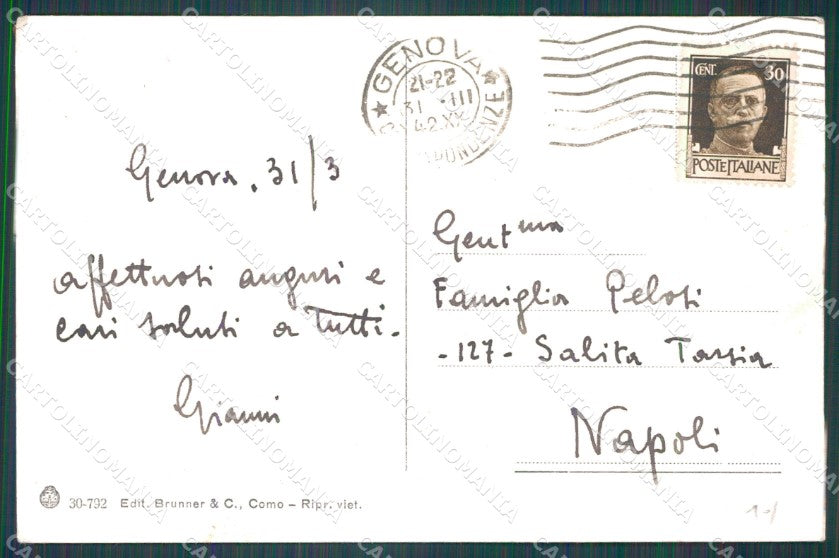 GENOVA
21-22
31 · III
42.XX
CENT. 30
POSTE ITALIANE
Genova, 31/3
affettuosi auguri e
cari saluti a Tutti.
Gianni
Gent ma
Famiglia Pelosi
- 127 - Salita Tarsia
Napoli
30-792 Edit. Brunner & C., Como – Ripr. viet.
CARTOLINOMANIA